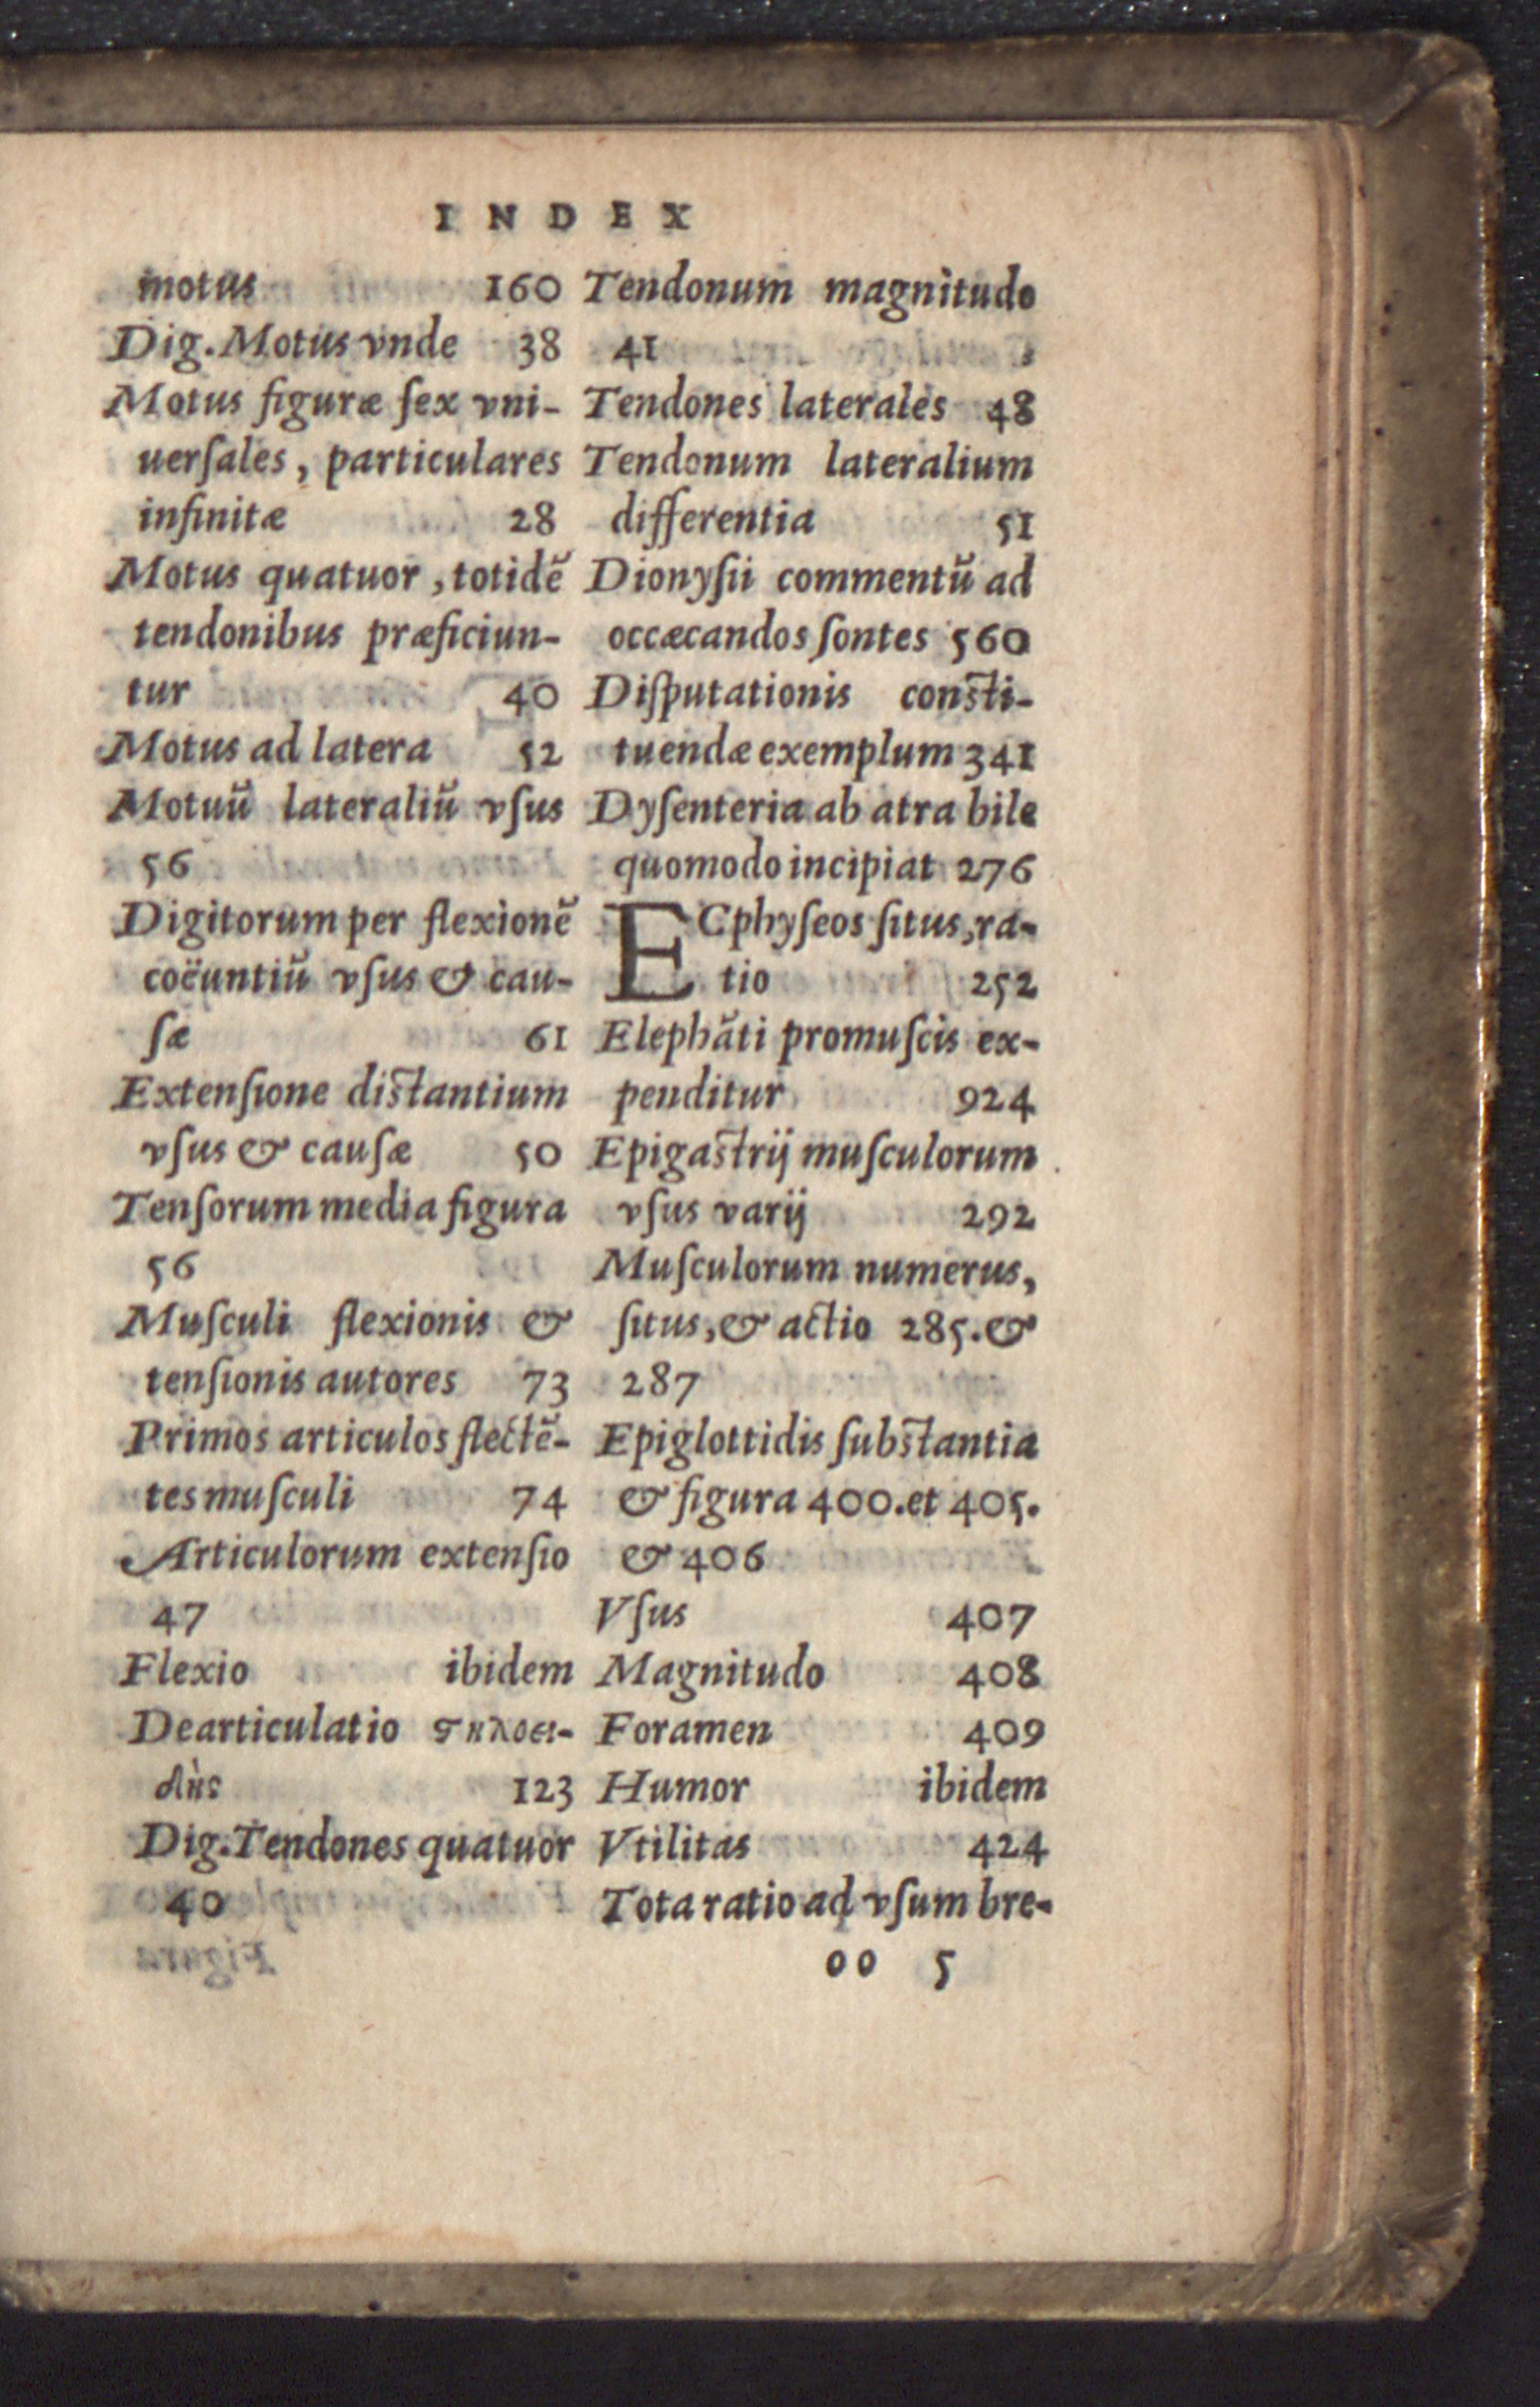 INDEX
motus 160
Dig. Motus vnde 38
Motus figuræ ſex vni-
uerſales, particulares
infinitæ 28
Motus quatuor, totidẽ
tendonibus præficiun-
tur 40
Motus ad latera 52
Motuũ lateraliũ vſus
56
Digitorum per flexionẽ
coëuntiũ vſus & cau-
ſæ 61
Extenſione diſtantium
vſus & cauſæ 50
Tenſorum media figura
56
Muſculi flexionis &
tenſionis autores 73
Primos articulos flectẽ-
tes muſculi 74
Articulorum extenſio
47
Flexio ibidem
Dearticulatio ϛηλοει-
δὴς 123
Dig. Tendones quatuor
40
Tendonum magnitudo
41
Tendones laterales 48
Tendonum lateralium
differentia 51
Dionyſii commentũ ad
occæcandos ſontes 560
Diſputationis conſti-
tuendæ exemplum 341
Dyſenteria ab atra bile
quomodo incipiat 276
ECphyſeos ſitus, ra-
tio 252
Elephãti promuſcis ex-
penditur 924
Epigaſtrij muſculorum
vſus varij 292
Muſculorum numerus,
ſitus, & actio 285. &
287
Epiglottidis ſubſtantia
& figura 400. et 405.
& 406
Vſus 407
Magnitudo 408
Foramen 409
Humor ibidem
Vtilitas 424
Tota ratio ad vſum bre-
oo 5